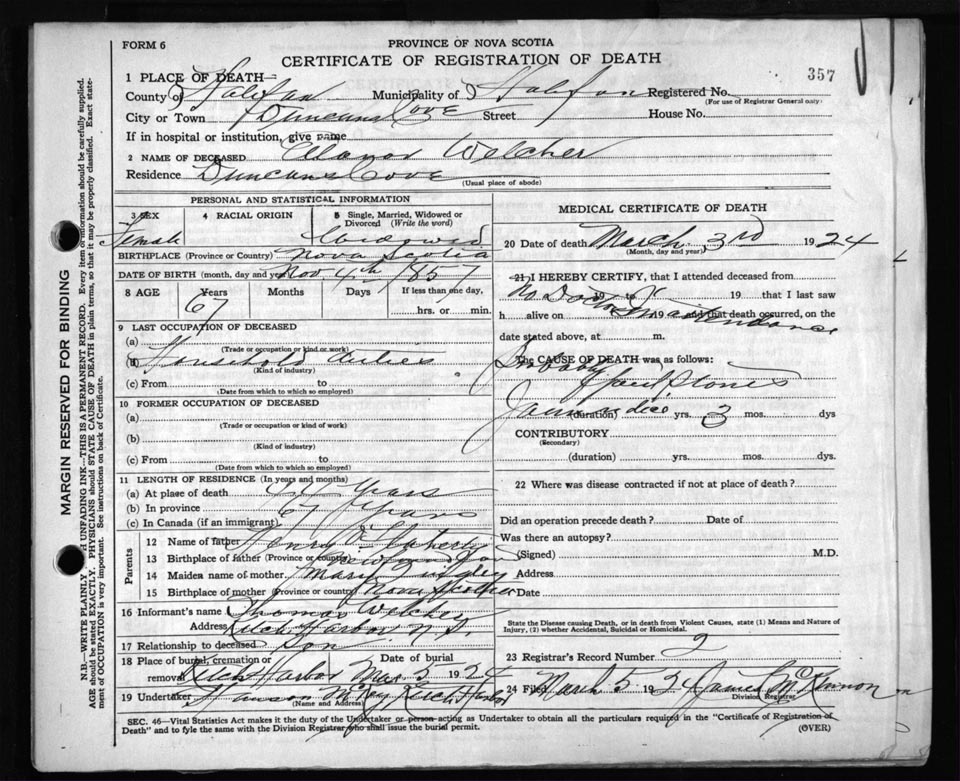 FORM 6
PROVINCE OF NOVA SCOTIA
CERTIFICATE OF REGISTRATION OF DEATH
357
1 PLACE OF DEATH—
County of Halifax Municipality of Halifax Registered No.
(For use of Registrar General only)
City or Town Duncans Cove Street House No.
If in hospital or institution, give name
2 NAME OF DECEASED Welcher
Residence Duncans Cove
(Usual place of abode)
PERSONAL AND STATISTICAL INFORMATION
3 SEX 4 RACIAL ORIGIN 5 Single, Married, Widowed or
Divorced (Write the word)
Female Widowed
BIRTHPLACE (Province or Country) Nova Scotia
DATE OF BIRTH (month, day and year) Nov 4th 1857
8 AGE Years Months Days If less than one day,
67 hrs. or min.
9 LAST OCCUPATION OF DECEASED
(a)
(Trade or occupation or kind of work)
(b) Household duties
(Kind of industry)
(c) From to
(Date from which to which so employed)
10 FORMER OCCUPATION OF DECEASED
(a)
(Trade or occupation or kind of work)
(b)
(Kind of industry)
(c) From to
(Date from which to which so employed)
11 LENGTH OF RESIDENCE (In years and months)
(a) At place of death 44 Years
(b) In province 67 Years
(c) In Canada (if an immigrant)
Parents
12 Name of father Henry
13 Birthplace of father (Province or country)
14 Maiden name of mother Mary
15 Birthplace of mother (Province or country) Nova Scotia
16 Informant's name Thomas Welcher
Address Ketch Harbor N.S.
17 Relationship to deceased Son
18 Place of burial, cremation or Date of burial
removal Ketch Harbor Mar 5 1924
19 Undertaker Ketch Harbor
(Name and Address)
MEDICAL CERTIFICATE OF DEATH
20 Date of death March 3rd 1924
(Month, day and year)
21 I HEREBY CERTIFY, that I attended deceased from
No Doctor 19 that I last saw
h alive on In attendance 19 and that death occurred, on the
date stated above, at m.
The CAUSE OF DEATH was as follows:
Probably Gaul Stones
Jaundice (duration) yrs. 3 mos. dys
CONTRIBUTORY
(Secondary)
(duration) yrs. mos. dys.
22 Where was disease contracted if not at place of death?
Did an operation precede death? Date of
Was there an autopsy?
(Signed) M.D.
Address
Date
State the Disease causing Death, or in death from Violent Causes, state (1) Means and Nature of
Injury, (2) whether Accidental, Suicidal or Homicidal.
23 Registrar's Record Number 2
24 Filed March 5 1924 James McKinnon
Division Registrar
SEC. 46—Vital Statistics Act makes it the duty of the Undertaker or person acting as Undertaker to obtain all the particulars required in the "Certificate of Registration of
Death" and to fyle the same with the Division Registrar who shall issue the burial permit.
(OVER)
MARGIN RESERVED FOR BINDING
N.B.—WRITE PLAINLY UNFADING INK—THIS IS A PERMANENT RECORD. Every item of information should be carefully supplied.
AGE should be stated EXACTLY. PHYSICIANS should STATE CAUSE OF DEATH in plain terms, so that it may be properly classified. Exact state-
ment of OCCUPATION is very important. See instructions on back of Certificate.